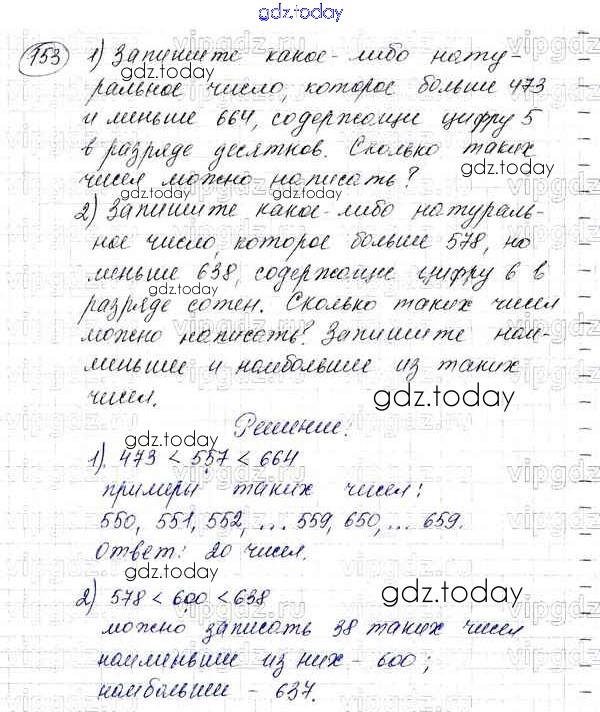 gdz.today
153 1) Запишите какое-либо нату-
gdz.today
ральное число, которое больше 473
и меньше 664, содержащие цифру 5
в разряде десятков. Сколько таких
gdz.today
чисел можно написать?
2) Запишите какое-либо натураль-
ное число, которое больше 578, но
gdz.today
меньше 638, содержащие цифру 6 в
gdz.today
разряде сотен. Сколько таких чисел
можно написать? Запишите наи-
меньшие и наибольшие из таких
чисел.
gdz.today
Решение:
gdz.today
1). 473 < 557 < 664
примеры таких чисел:
550, 551, 552, ... 559, 650, ... 659.
gdz.today
Ответ: 20 чисел.
2) 578 < 600 < 638
gdz.today
можно записать 38 таких чисел
наименьшие из них - 600;
gdz.today
наибольшие - 637.